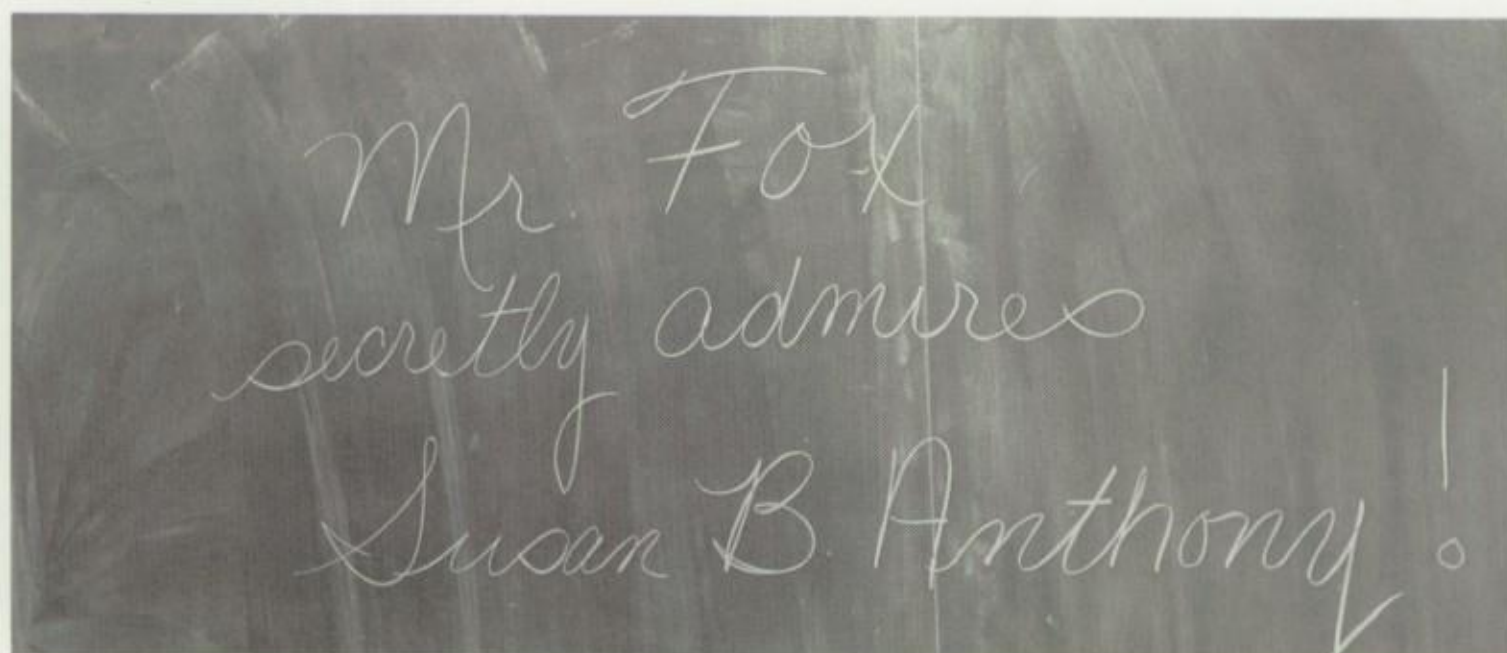 Mr. Fox
secretly admires
Susan B. Anthony!